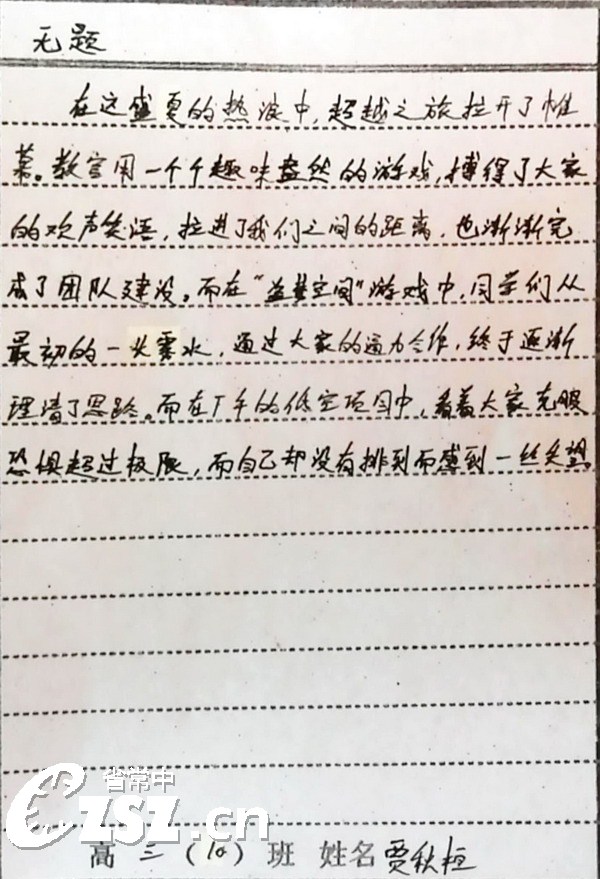 无题
在这盛夏的热浪中,超越之旅拉开了帷
幕。教官用一个个趣味盎然的游戏,搏得了大家
的欢声笑语,拉进了我们之间的距离,也渐渐完
成了团队建设。而在“盗梦空间”游戏中,同学们从
最初的一头雾水,通过大家的通力合作,终于逐渐
理清了思路。而在下午的低空项目中,看着大家克服
恐惧超过极限,而自己却没有排到而感到一丝失望
省常中
CZSZ.cn
高三(10)班 姓名贾秋桓